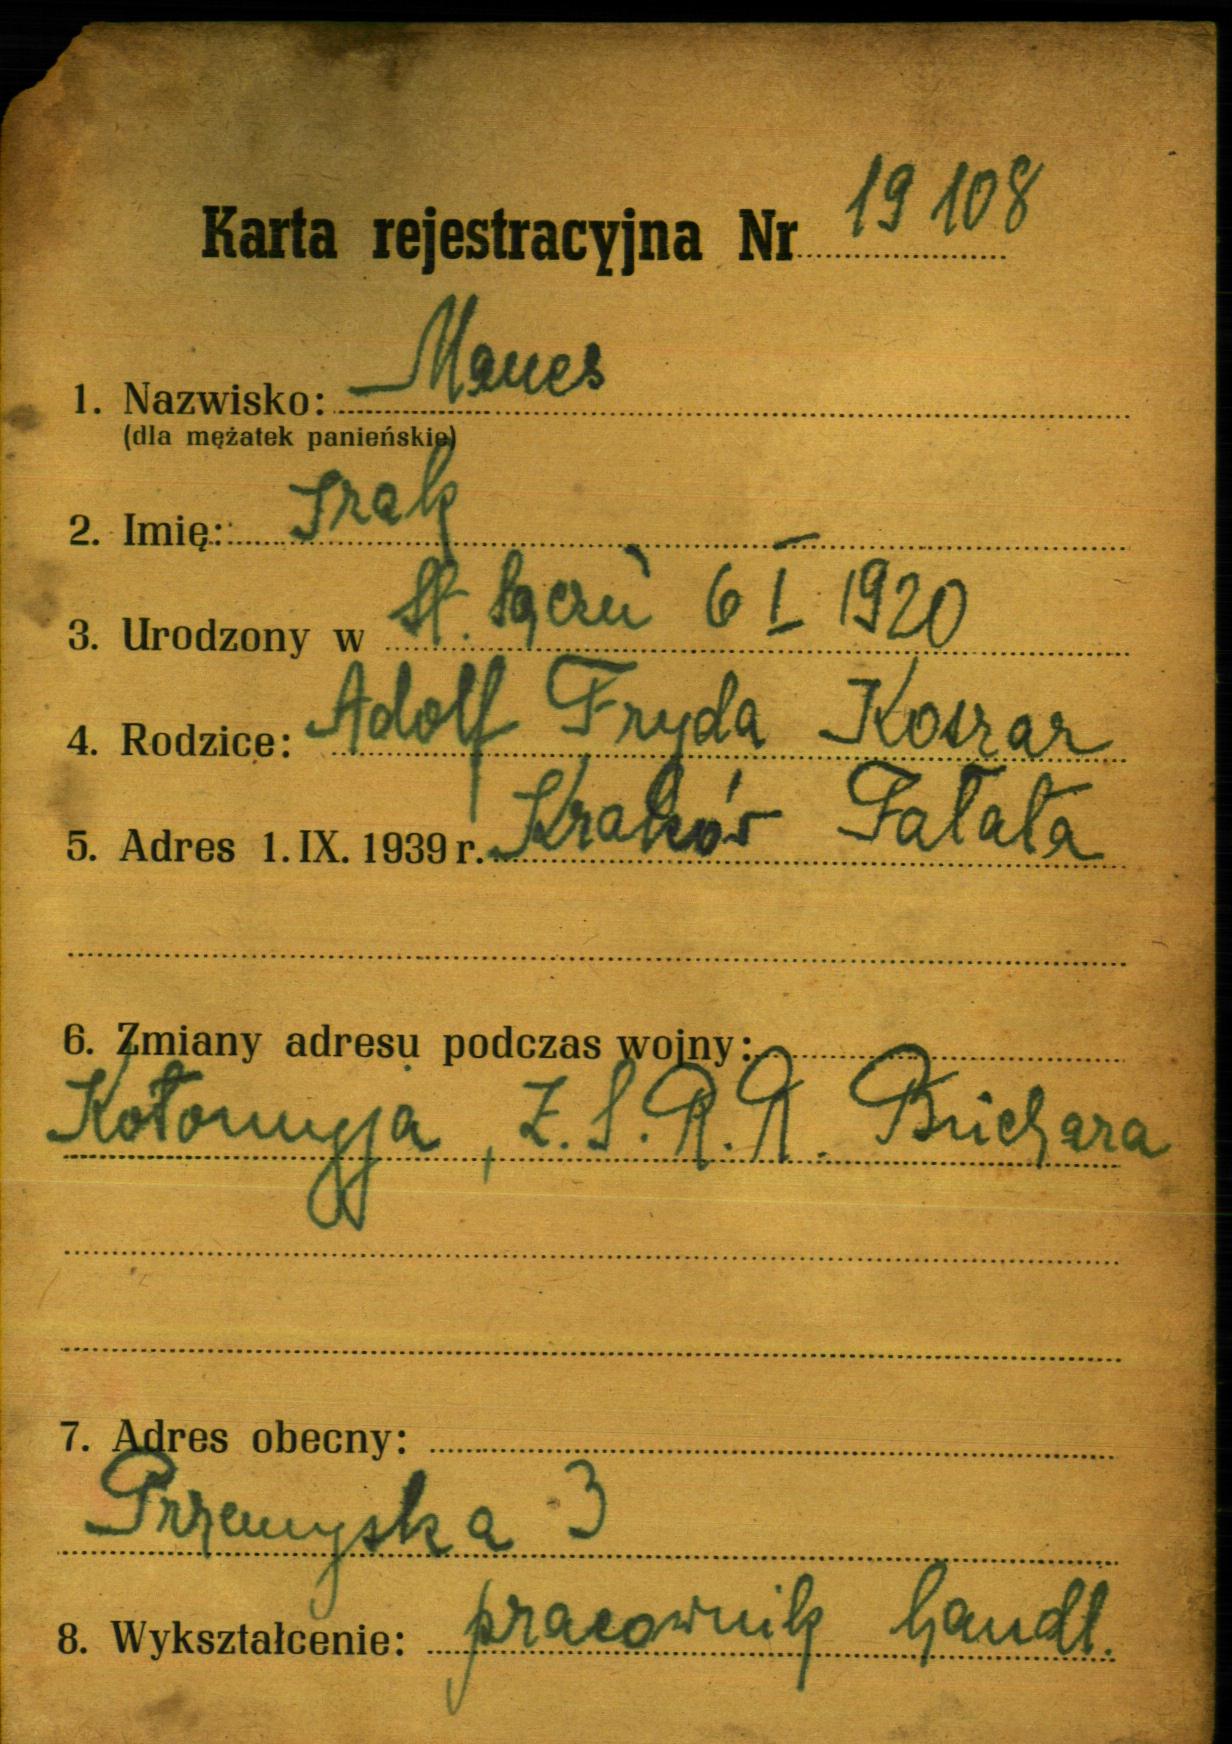 Karta rejestracyjna Nr 19108
1. Nazwisko: Manes
(dla mężatek panieńskie)
2. Imię: Izak
3. Urodzony w St. Sączu 6 I 1920
4. Rodzice: Adolf Fryda Koszar
5. Adres 1. IX. 1939 r. Kraków Fałata
6. Zmiany adresu podczas wojny:
Kołomyja, Z.S.R.R. Buchara
7. Adres obecny:
Przemyska 3
8. Wykształcenie: pracownik handl.